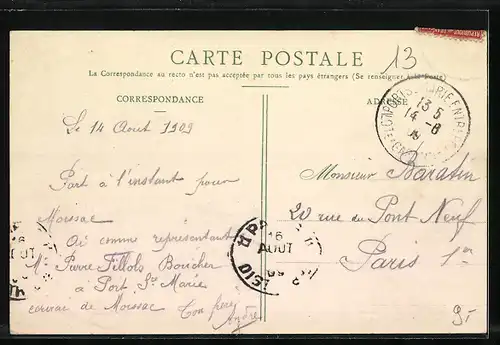 CARTE POSTALE
La Correspondance au recto n'est pas acceptée par tous les pays étrangers (Se renseigner à la Poste)
CORRESPONDANCE
ADRESSE
13
Le 14 Aout 1909
Part à l'instant pour
Moissac
Où comme representant
Mr Pierre Fillols Boucher
à Port Ste Marie
écrirai de Moissac Ton père
André
13 5
14 - 8
09
16
AOUT
DIST
Monsieur Baratin
20 rue du Pont Neuf
Paris 1er
9-